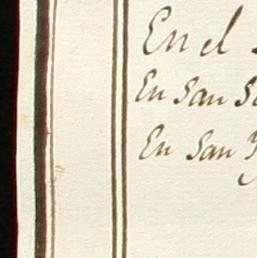 En el
En San
En San